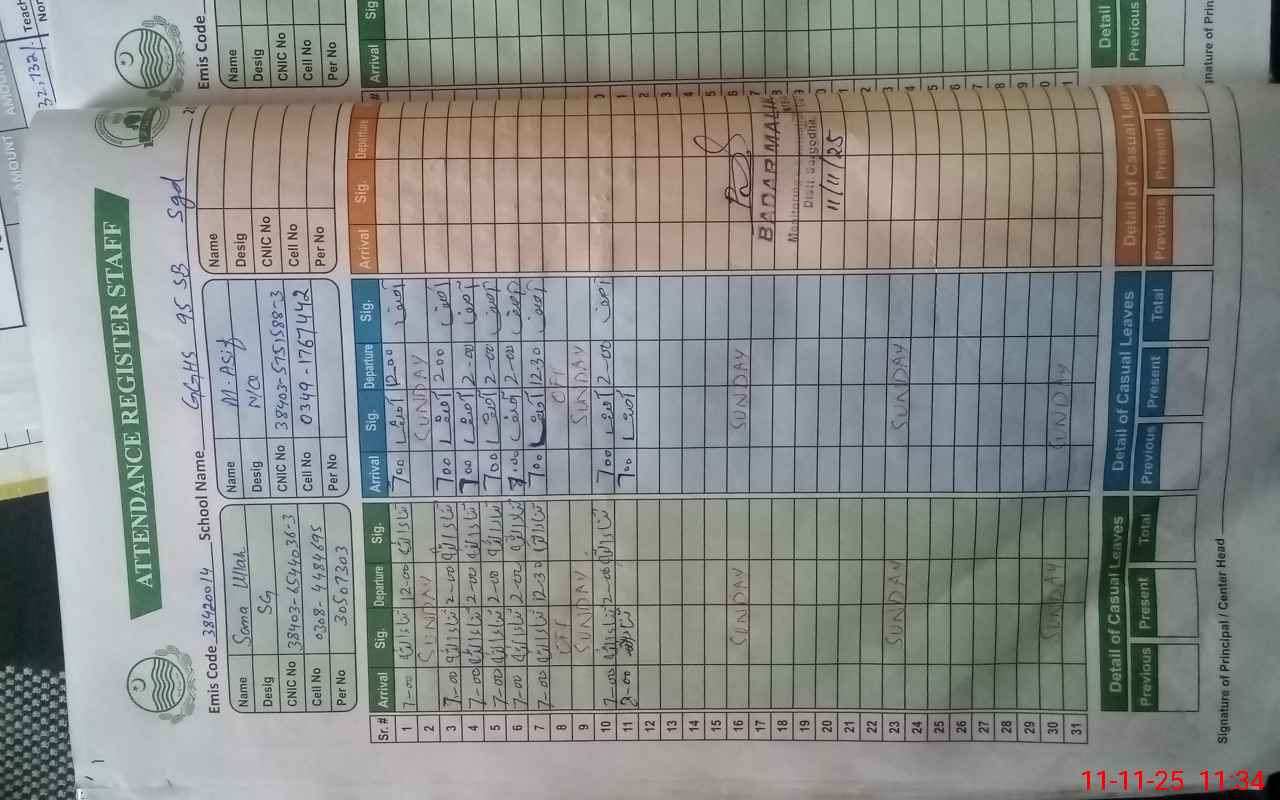 ATTENDANCE REGISTER STAFF
Emis Code 38420014 School Name GGHS 95 SB Sgd
Name Sana Ullah
Desig SG
CNIC No 38403-6544036-3
Cell No 0308-4484695
Per No 30507303
Name M. Asif
Desig N/Q
CNIC No 38403-5751588-3
Cell No 0349-1767442
Per No
Name
Desig
CNIC No
Cell No
Per No
Sr. # Arrival Sig. Departure Sig. Arrival Sig. Departure Sig. Arrival Sig. Departure
1 7-00 ثناءاللہ 12-00 ثناءاللہ 700 آصف 12-00 آصف
2 SUNDAY SUNDAY
3 7-00 ثناءاللہ 2-00 ثناءاللہ 700 آصف 200 آصف
4 7-00 ثناءاللہ 2-00 ثناءاللہ 700 آصف 2-00 آصف
5 7-00 ثناءاللہ 2-00 ثناءاللہ 700 آصف 2-00 آصف
6 7-00 ثناءاللہ 2-00 ثناءاللہ 7.00 آصف 2-00 آصف
7 7-00 ثناءاللہ 12 30 ثناءاللہ 700 آصف 1230 آصف
8 Off Off
9 SUNDAY SUNDAY
10 7-00 ثناءاللہ 2-00 ثناءاللہ 700 آصف 2-00 آصف
11 7-00 ثناءاللہ 700 آصف
12
13
14
15
16 SUNDAY SUNDAY
17
18
19
20
21
22
23 SUNDAY SUNDAY
24
25
26
27
28
29
30 SUNDAY SUNDAY
31
BADAR MALIK
Distt Sargodha
11/11/25
Detail of Casual Leaves Detail of Casual Leaves Detail of Casual Leave
Previous Present Total Previous Present Total Previous Present
Signature of Principal / Center Head
Emis Code
Name
Desig
CNIC No
Cell No
Per No
Arrival Sig
Detail
Previous
AMOUNT
32,732/-
11-11-25 11:34